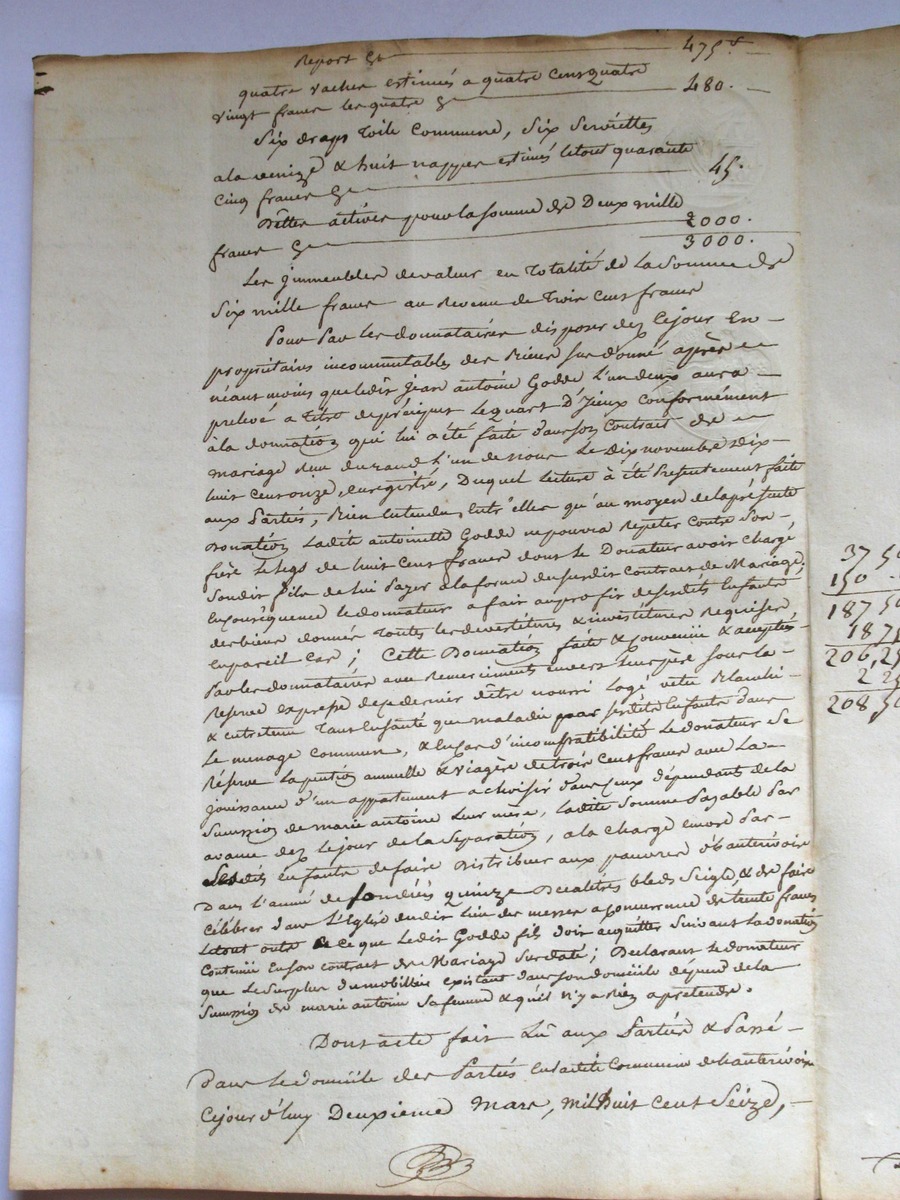 Report Ci 475 f
quatre vaches estimés a quatre cens quatre
vingt francs les quatre Ci 480.
Six draps toile commune, Six Serviettes
a la venize & huit nappes estimés letout quarante
Cinq francs Ci 45.
Dêttes actives pour la somme de Deux mille
francs Ci 2000.
3000.
Les jmmeubles de valeur en Totalité de La Somme de
Six mille francs au Revenu de Trois Cent francs
Pour Par les donnataires disposer dez cejour en
propriétaires incommutables des Biens sus donné après
néant moins que ledit jean antoine Godde l'un deux aura
prelevé a titre de préciput le quart d'jceux conformément
à la donnation qui lui a été faite dans son Contrait de
mariage Reçu durand l'un de nous Le dix novembre Dix
huit cent onze, enregistré, Duquel lecture à été Présentement faite
aux Parties, Bien entendu entr'elles qu'au moyen de la présente
Donnation Ladite antoinette Godde ne pourra Répéter contre Son
frère le legs de huit Cent francs dont le Donateur avoit chargé
Sondit fils de lui Payer à la forme du susdit contract de Mariage;
En conséquence le donnateur a fait au profit de sesdits Enfants
des biens donnés toutes les devestitures & investitures Requises
en pareil cas; Cette Donnation faite & convenüe & acceptés
Par les donnataires avec Remerciments envers leur père sous la
Réserve expresse de ce dernier d'être nourri Logé vetu Blanchi
& entretenu Tant en santé que maladie par sesdits Enfants dans
Le menage commun, & en cas d'incompatibilité Le donateur Se
Réserve La pention annuelle & viagère de trois cent francs avec La
jouissance d'un appartement a choisir dans ceux dépendants de la
Succession de marie antoine leur mère, ladite Somme Payable Par
avance dez le jour de la Séparation, a la charge encore Par
Lesdits Enfants de faire Distribuer aux pauvres d'hauterivoire
Dans l'année de son décés quinze Décalitres bled Seigle, & de faire
célébrer dans l'Eglise dudit lieu des messes a concurrence de trente francs
Letout outre ce que Ledit Godde fils doit acquitter Suivant La donation
Contenüe en son contract de Mariage Surdaté; Déclarant le donateur
que Le Surplus du mobillier existant dans son domicile dépend de la
Succession de marie antoine sa femme & qu'il n'y a Rien a prétendre.
Dont acte fait Lû aux Parties & Passé
Dans le domicile des Parties en ladite Commune d'hauterivoire
Cejour d'huy Deuxieme mars, mil huit cent Seize,
37 50
150
187 50
187
206,25
2 25
208 50